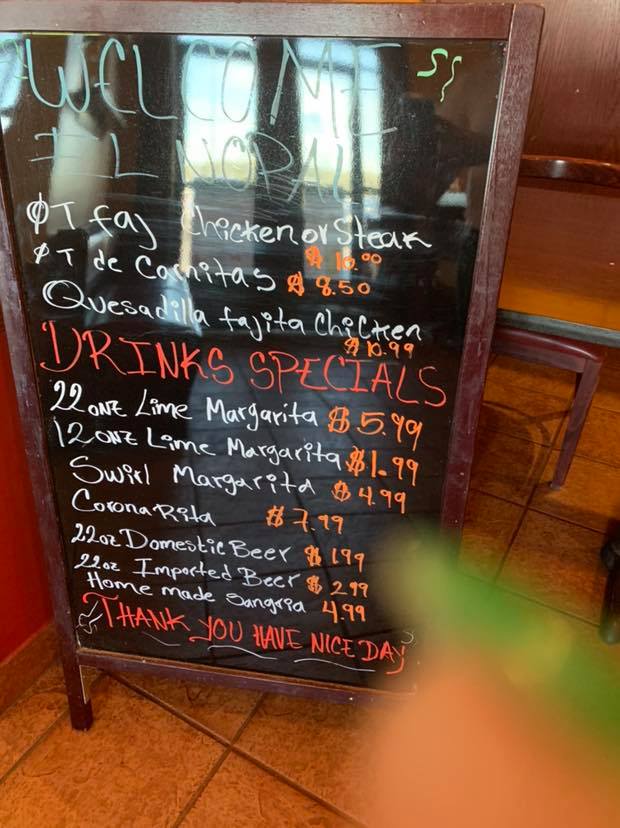 WELCOME
EL NOPAL
ØT faj Chicken or Steak
$ 10.00
ØT de Carnitas $ 8.50
Quesadilla fajita Chicken
$ 10.99
DRINKS SPECIALS
22 onz Lime Margarita $ 5.99
12 onz Lime Margarita $1.99
Swirl Margarita $ 4.99
Corona Rita $ 7.99
22oz Domestic Beer $ 199
22oz Imported Beer $ 299
Home made Sangria 4.99
THANK YOU HAVE NICE DAY